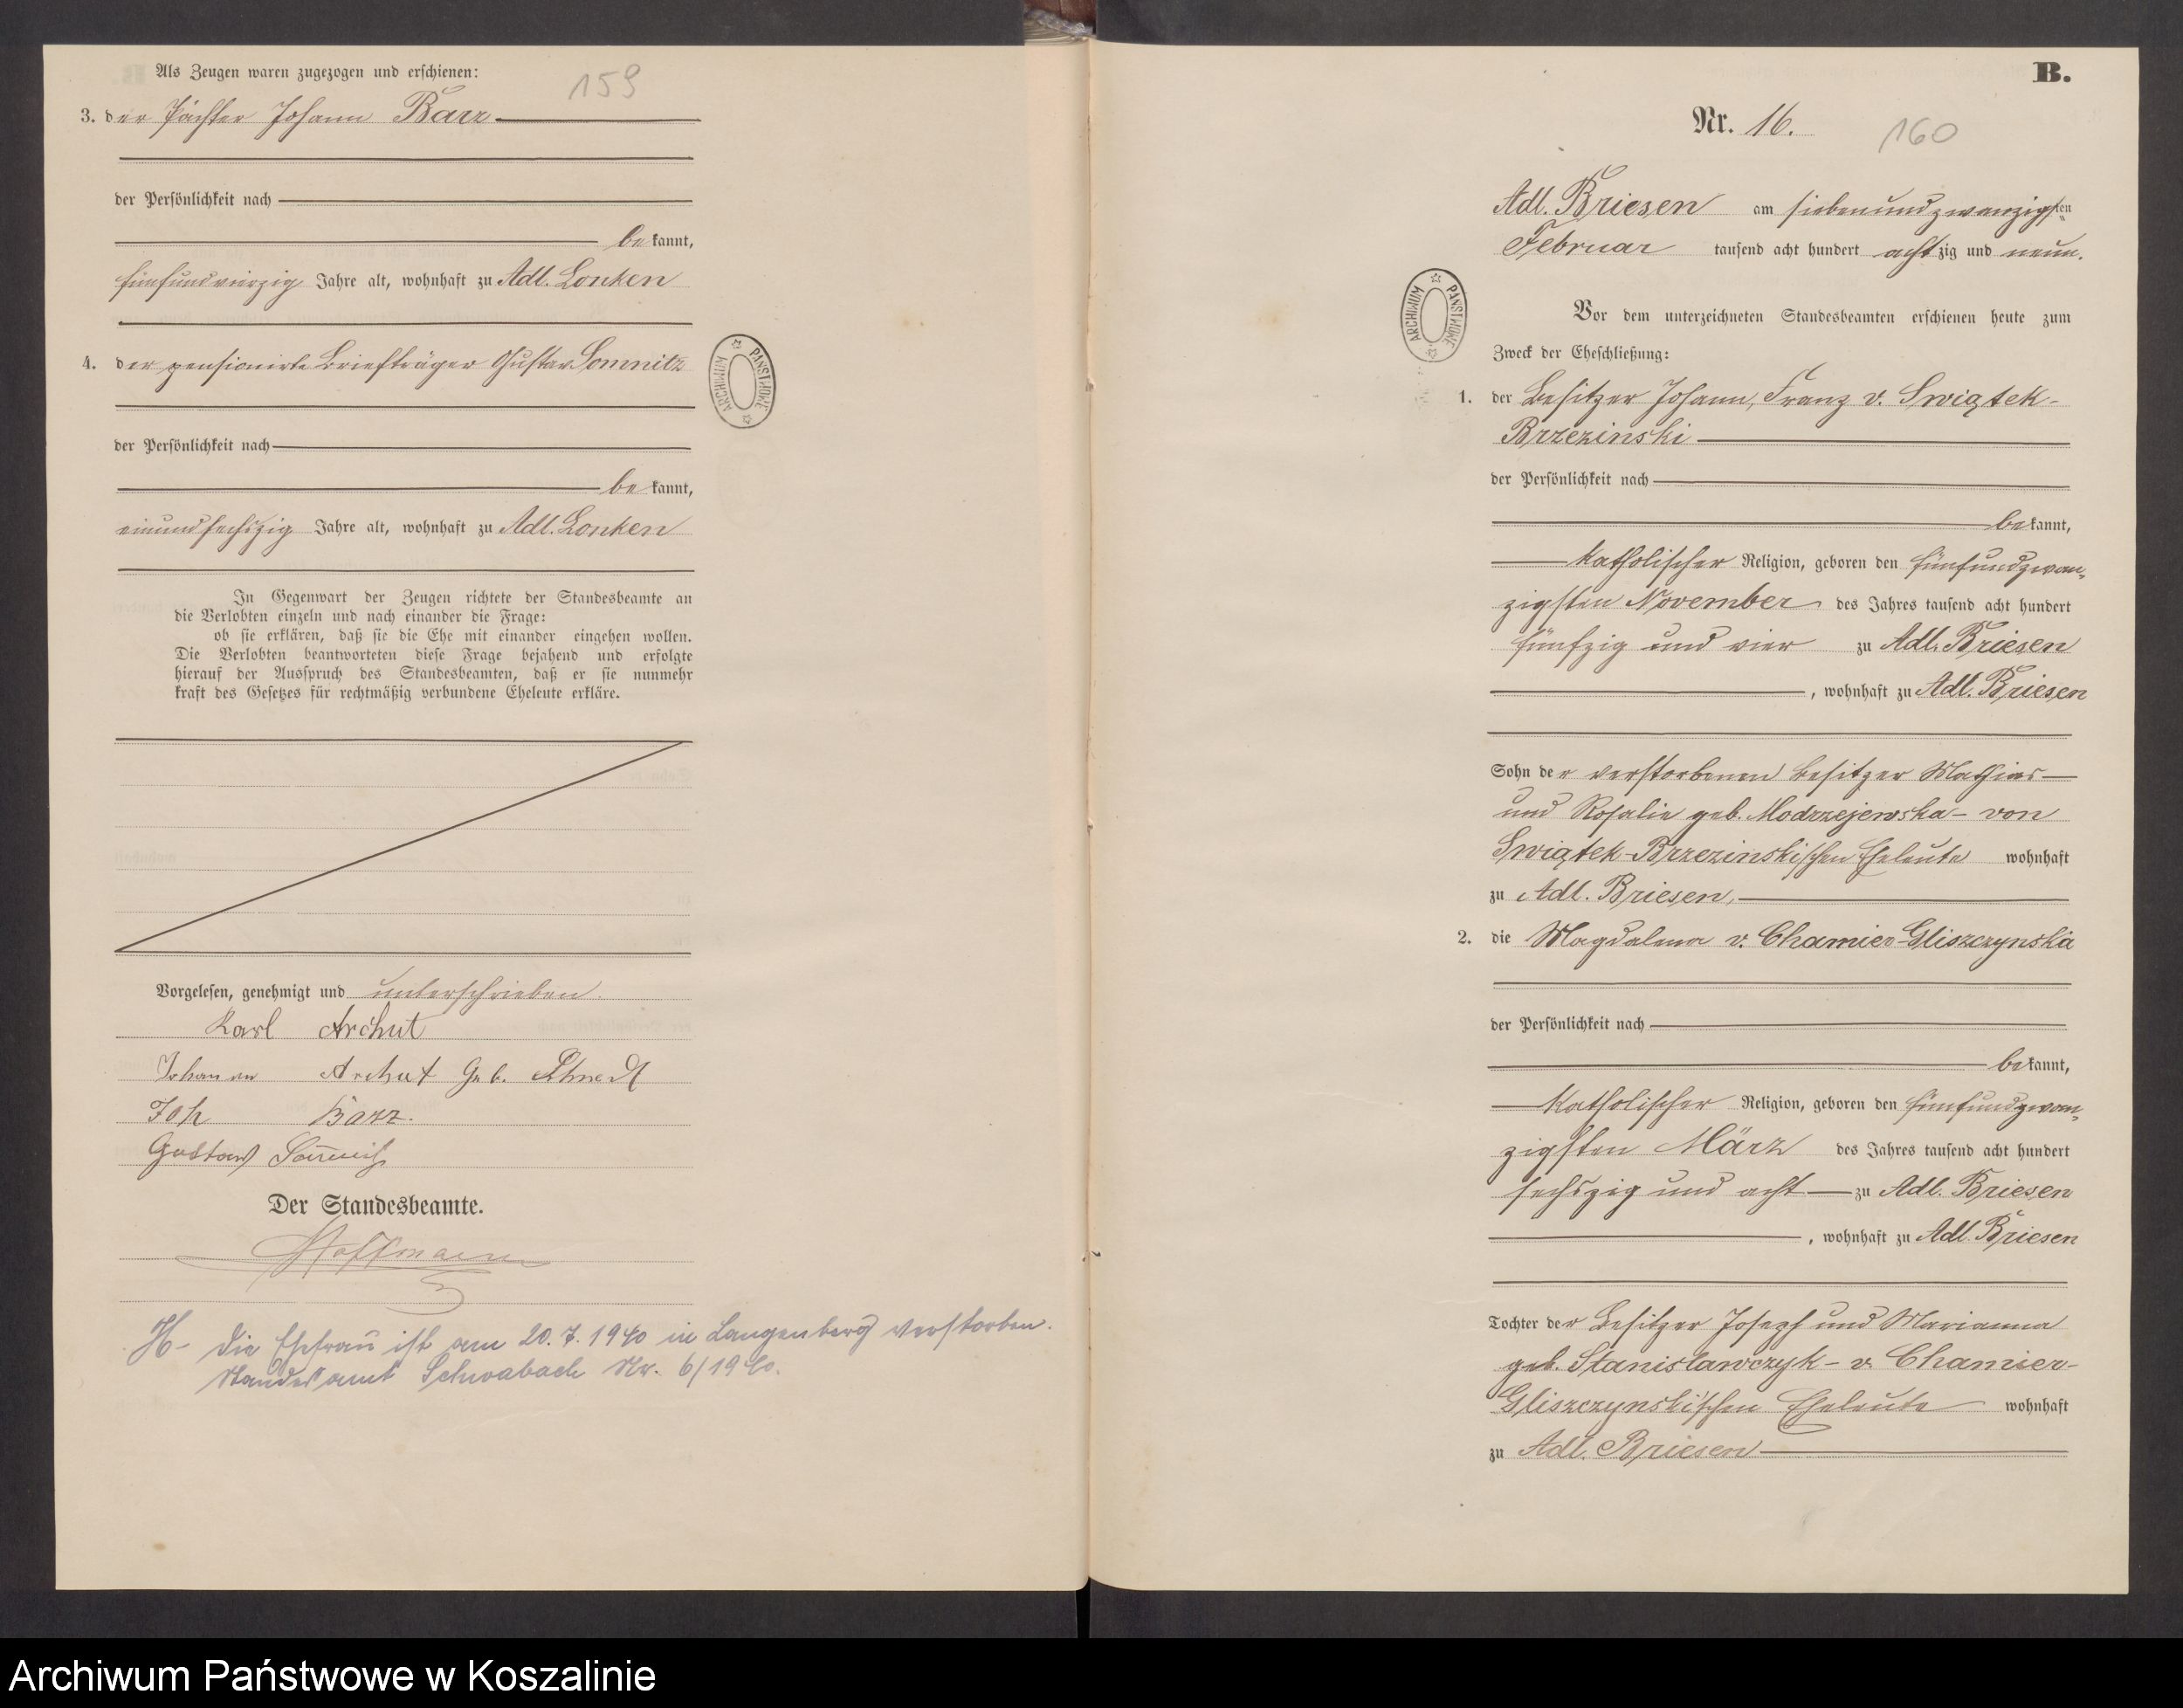 Als Zeugen waren zugezogen und erschienen:
159
3. der Pächter Johann Barz
der Persönlichkeit nach
bekannt,
fünfundvierzig Jahre alt, wohnhaft zu Adl. Lonken
4. der pensionirte Briefträger Gustav Somnitz
der Persönlichkeit nach
bekannt,
einundsechszig Jahre alt, wohnhaft zu Adl. Lonken
In Gegenwart der Zeugen richtete der Standesbeamte an
die Verlobten einzeln und nach einander die Frage:
ob sie erklären, daß sie die Ehe mit einander eingehen wollen.
Die Verlobten beantworteten diese Frage bejahend und erfolgte
hierauf der Ausspruch des Standesbeamten, daß er sie nunmehr
kraft des Gesetzes für rechtmäßig verbundene Eheleute erkläre.
Vorgelesen, genehmigt und unterschrieben.
Karl Archut
Archut Geb.
Joh Barz.
Gustav
Der Standesbeamte.
Hoffmann
H- Die Ehefrau ist am 20.7.1940 in Langenberg verstorben.
Standesamt Schwabach Nr. 6/1940.
ARCHIWUM PAŃSTWOWE
B.
Nr. 16.
160
Adl. Briesen am siebenundzwanzigsten
Februar tausend acht hundert achtzig und neun.
Vor dem unterzeichneten Standesbeamten erschienen heute zum
Zweck der Eheschließung:
1. der Besitzer Johann, Franz v. Swiątek-
Brzezinski
der Persönlichkeit nach
bekannt,
katholischer Religion, geboren den fünfundzwan-
zigsten November des Jahres tausend acht hundert
fünfzig und vier zu Adl. Briesen
, wohnhaft zu Adl. Briesen
Sohn der verstorbenen Besitzer Mathias
und Rosalie geb. Modrzejewska - von
Swiątek-Brzezinskischen Eheleute wohnhaft
zu Adl. Briesen,
2. die Magdalena v. Chamier-Gliszczynska
der Persönlichkeit nach
bekannt,
katholischer Religion, geboren den fünfundzwan-
zigsten März des Jahres tausend acht hundert
sechszig und acht zu Adl. Briesen
, wohnhaft zu Adl. Briesen
Tochter der Besitzer Joseph und Marianna
geb. Stanisławczyk - v. Chamier-
Gliszczynski'schen Eheleute wohnhaft
zu Adl. Briesen
ARCHIWUM PAŃSTWOWE
Archiwum Państwowe w Koszalinie